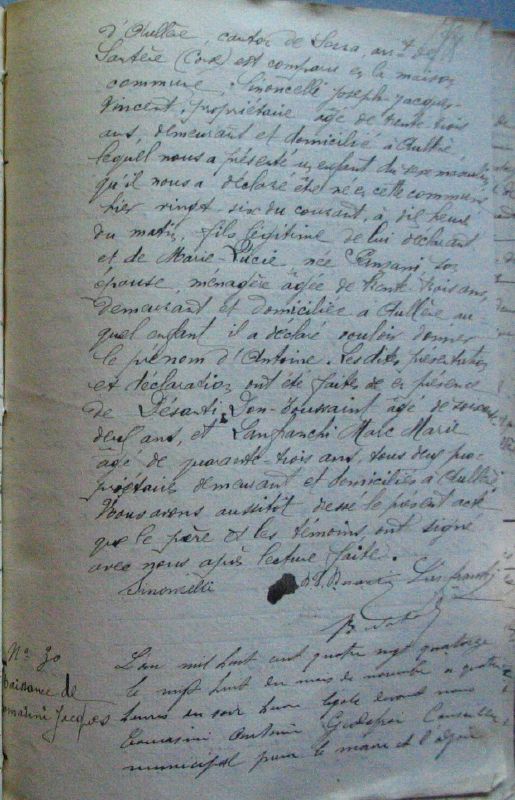 d'Aullène, canton de Serra, arr.t de
Sartène (Corse) est comparu en la maison
commune, Simoncelli Joseph-Jacques-
Vincent, propriétaire âgé de trente trois
ans, demeurant et domicilié à Aullène
lequel nous a présenté un enfant du sexe masculin,
qu'il nous a déclaré être né en cette commune
hier vingt six du courant, à dix heures
du matin, fils légitime de lui déclarant
et de Marie Lucie née son
épouse, ménagère âgée de trente trois ans,
demeurant et domiciliée à Aullène au
quel enfant il a déclaré vouloir donner
le prénom d'Antoine. Lesdites présentation
et déclaration ont été faites de en présence
de Désanti Don-Toussaint âgé de soixante
deux ans, et Lanfranchi Marc Marie
âgé de quarante trois ans, tous deux pro-
priétaires demeurant et domiciliés à Aullène
Nous avons aussitôt dressé le présent acte
que le père et les témoins ont signé
avec nous après lecture faite.
Simoncelli Lanfranchi
N.o 30
Naissance de
Jacques
L'an mil huit cent quatre vingt quatorze
le vingt huit du mois de novembre à quatre
heures du soir heure légale devant nous
Tomasini Antoine Conseiller
municipal pour le maire et l'adjoint